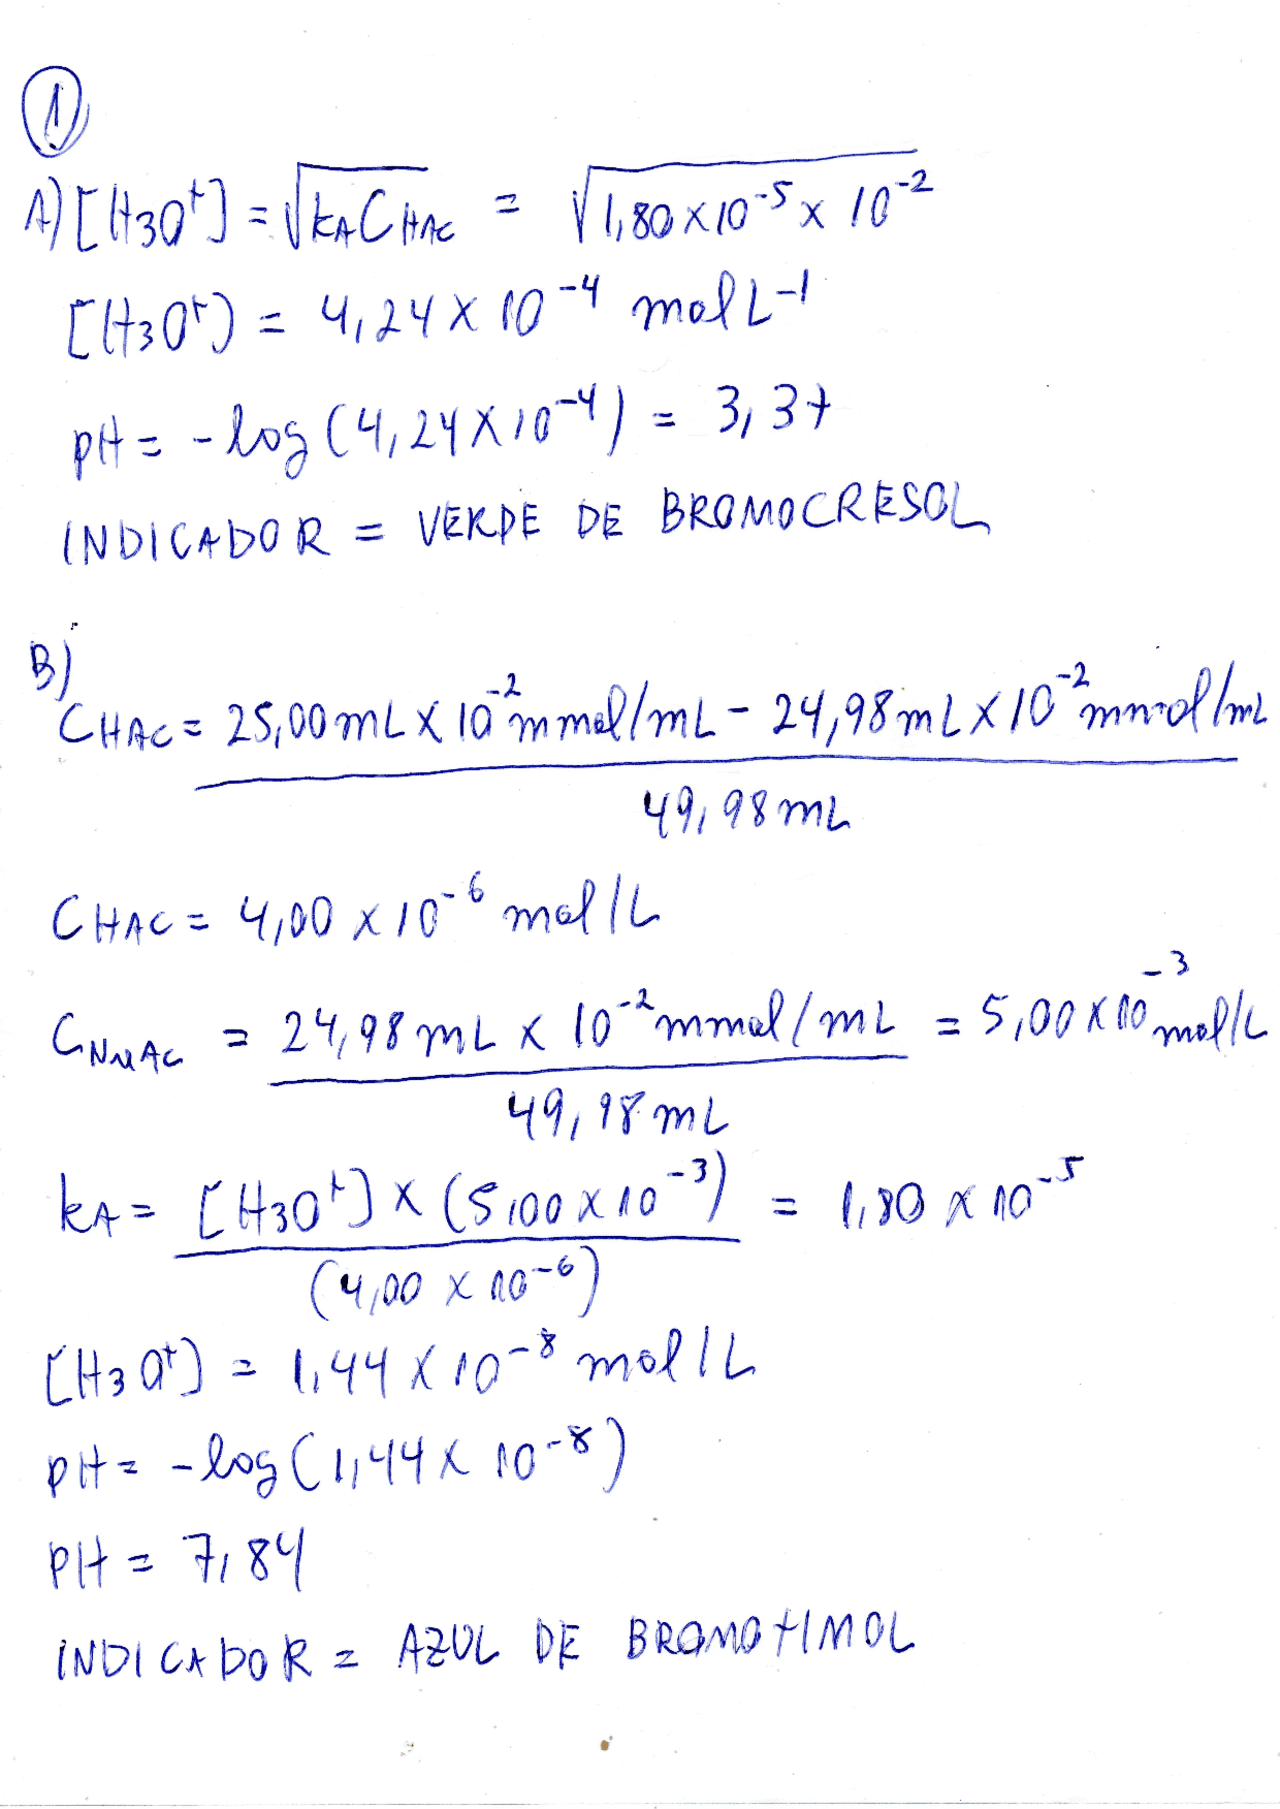 1
A) [H3O+] = √kACHAc = √1,80 x 10-5 x 10-2
[H3O+) = 4,24 x 10-4 mol L-1
pH = -log (4,24 x 10-4) = 3,37
INDICADOR = VERDE DE BROMOCRESOL
B)
CHAC = 25,00 mL x 10-2 mmol/mL - 24,98 mL x 10-2 mmol/mL
49,98 mL
CHAC = 4,00 x 10-6 mol/L
CNaAC = 24,98 mL x 10-2 mmol/mL = 5,00 x 10-3 mol/L
49,98 mL
kA = [H3O+] x (5,00 x 10-3) = 1,80 x 10-5
(4,00 x 10-6)
[H3O+) = 1,44 x 10-8 mol/L
pH = -log (1,44 x 10-8)
pH = 7,84
INDICADOR = AZUL DE BROMOTIMOL